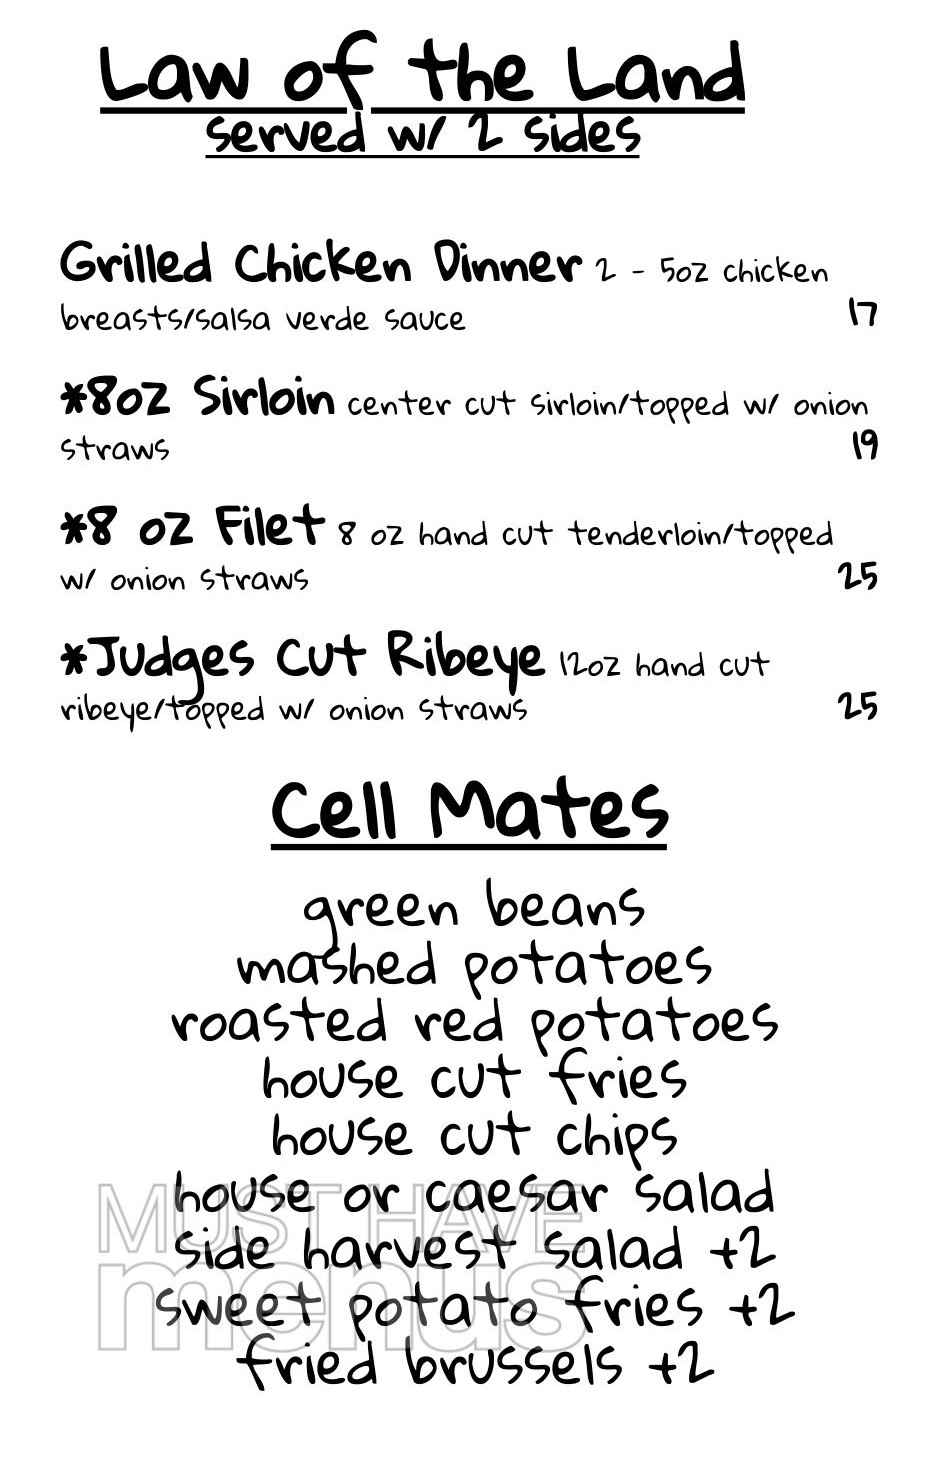 Law of the Land
served w/ 2 sides
Grilled Chicken Dinner 2 - 5oz chicken
breasts/salsa verde sauce 17
*8oz Sirloin center cut sirloin/topped w/ onion
straws 19
*8 oz Filet 8 oz hand cut tenderloin/topped
w/ onion straws 25
*Judges Cut Ribeye 12oz hand cut
ribeye/topped w/ onion straws 25
Cell Mates
green beans
mashed potatoes
roasted red potatoes
house cut fries
house cut chips
house or caesar salad
side harvest salad +2
sweet potato fries +2
fried brussels +2
MUST HAVE
menus